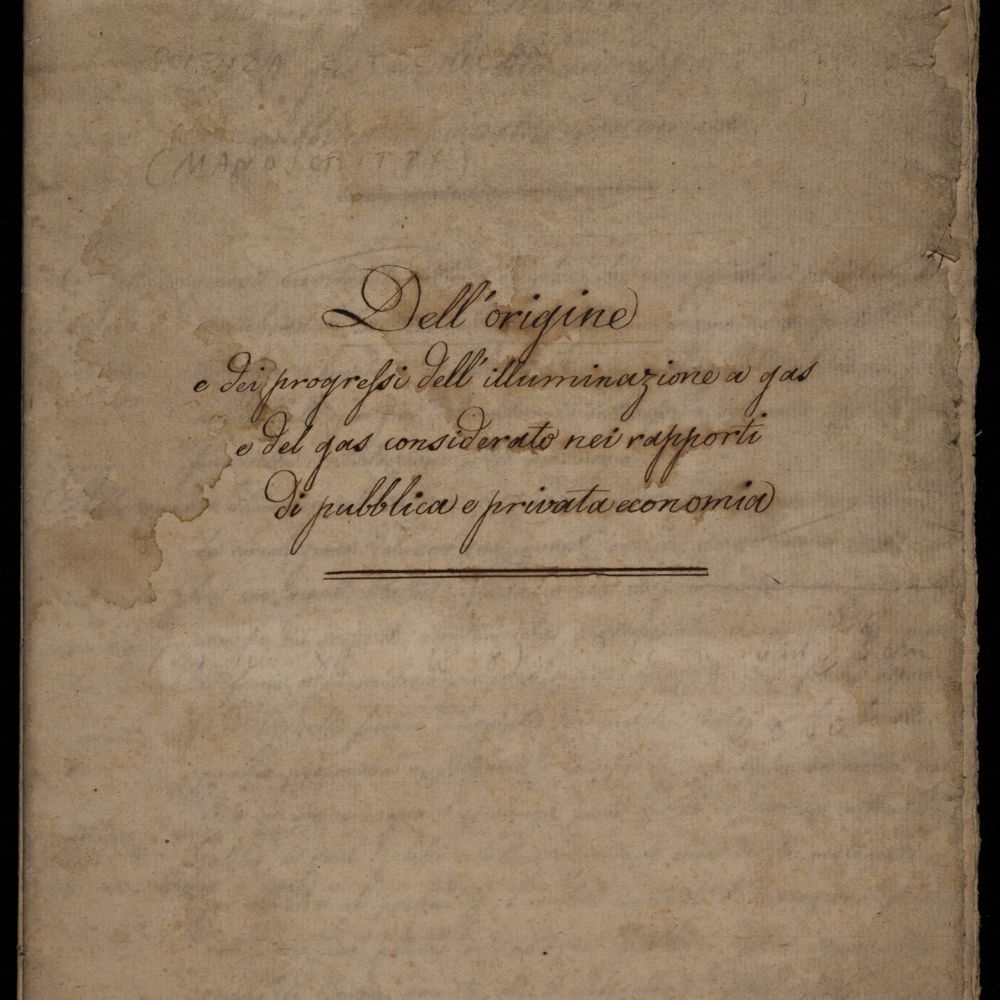 SCIENZA E TECNICA
(MANOSCRITTI)
Dell'origine
e dei progressi dell'illuminazione a gas
e del gas considerato nei rapporti
di pubblica e privata economia